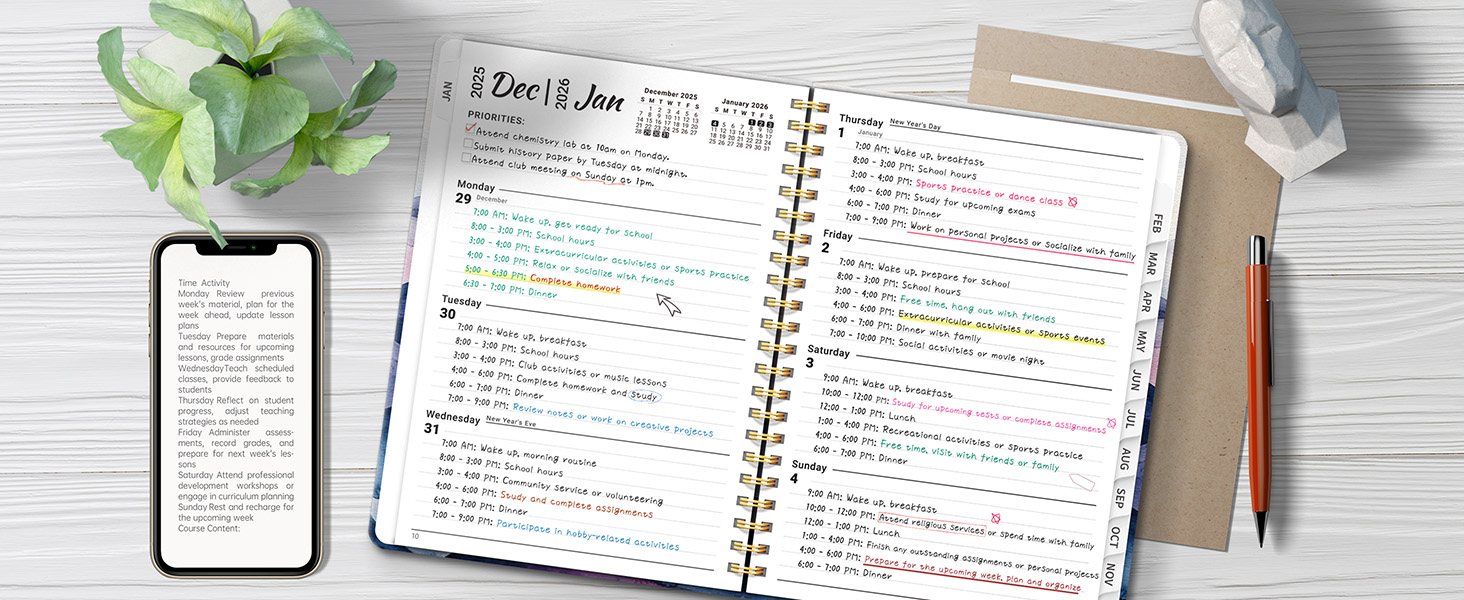 Time Activity
Monday Review previous
week's material, plan for the
week ahead, update lesson
plans
Tuesday Prepare materials
and resources for upcoming
lessons, grade assignments
WednesdayTeach scheduled
classes, provide feedback to
students
Thursday Reflect on student
progress, adjust teaching
strategies as needed
Friday Administer assess-
ments, record grades, and
prepare for next week's les-
sons
Saturday Attend professional
development workshops or
engage in curriculum planning
Sunday Rest and recharge for
the upcoming week
Course Content:
JAN
2025 Dec | 2026 Jan
December 2025
S M T W T F S
1 2 3 4 5 6
7 8 9 10 11 12 13
14 15 16 17 18 19 20
21 22 23 24 25 26 27
28 29 30 31
January 2026
S M T W T F S
1 2 3
4 5 6 7 8 9 10
11 12 13 14 15 16 17
18 19 20 21 22 23 24
25 26 27 28 29 30 31
PRIORITIES:
Attend chemistry lab at 10am on Monday.
Submit history paper by Tuesday at midnight.
Attend club meeting on Sunday at 1pm.
Monday
29 December
7:00 AM: Wake up, get ready for school
8:00 - 3:00 PM: School hours
3:00 - 4:00 PM: Extracurricular activities or sports practice
4:00 - 5:00 PM: Relax or socialize with friends
5:00 - 6:30 PM: Complete homework
6:30 - 7:00 PM: Dinner
Tuesday
30
7:00 AM: Wake up, breakfast
8:00 - 3:00 PM: School hours
3:00 - 4:00 PM: Club activities or music lessons
4:00 - 6:00 PM: Complete homework and study
6:00 - 7:00 PM: Dinner
7:00 - 9:00 PM: Review notes or work on creative projects
Wednesday New Year's Eve
31
7:00 AM: Wake up, morning routine
8:00 - 3:00 PM: School hours
3:00 - 4:00 PM: Community service or volunteering
4:00 - 6:00 PM: Study and complete assignments
6:00 - 7:00 PM: Dinner
7:00 - 9:00 PM: Participate in hobby-related activities
10
Thursday New Year's Day
1 January
7:00 AM: Wake up, breakfast
8:00 - 3:00 PM: School hours
3:00 - 4:00 PM: Sports practice or dance class
4:00 - 6:00 PM: Study for upcoming exams
6:00 - 7:00 PM: Dinner
7:00 - 9:00 PM: Work on personal projects or socialize with family
Friday
2
7:00 AM: Wake up, prepare for school
8:00 - 3:00 PM: School hours
3:00 - 4:00 PM: Free time, hang out with friends
4:00 - 6:00 PM: Extracurricular activities or sports events
6:00 - 7:00 PM: Dinner with family
7:00 - 10:00 PM: Social activities or movie night
Saturday
3
9:00 AM: Wake up, breakfast
10:00 - 12:00 PM: Study for upcoming tests or complete assignments
12:00 - 1:00 PM: Lunch
1:00 - 4:00 PM: Recreational activities or sports practice
4:00 - 6:00 PM: Free time, visit with friends or family
6:00 - 7:00 PM: Dinner
Sunday
4
9:00 AM: Wake up, breakfast
10:00 - 12:00 PM: Attend religious services or spend time with family
12:00 - 1:00 PM: Lunch
1:00 - 4:00 PM: Finish any outstanding assignments or personal projects
4:00 - 6:00 PM: Prepare for the upcoming week, plan and organize
6:00 - 7:00 PM: Dinner
FEB
MAR
APR
MAY
JUN
JUL
AUG
SEP
OCT
NOV